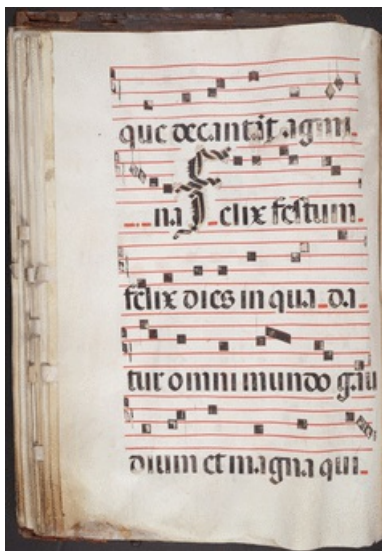 que decantat agmi
na Felix festum
felix dies in qua da
tur omni mundo gau
dium et magna qui